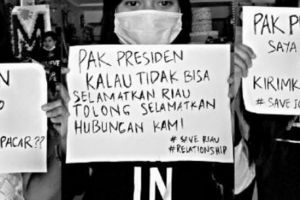 PAK PRESIDEN
KALAU TIDAK BISA
SELAMATKAN RIAU
TOLONG SELAMATKAN
HUBUNGAN KAMI
# SAVE RIAU
#RELATIONSHIP
PACAR??
PAK P
SAYA
KIRIMK
# SAVE
IN
M